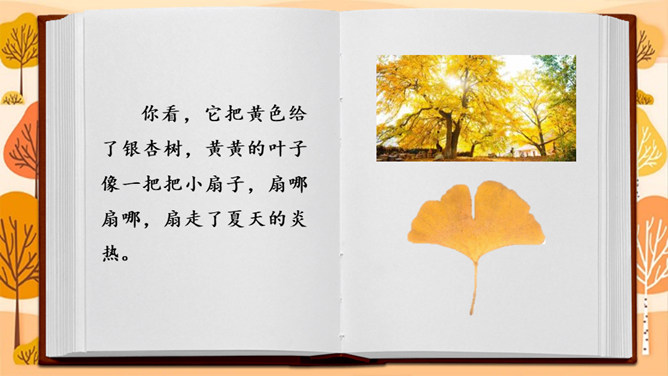 你看，它把黄色给
了银杏树，黄黄的叶子
像一把把小扇子，扇哪
扇哪，扇走了夏天的炎
热。